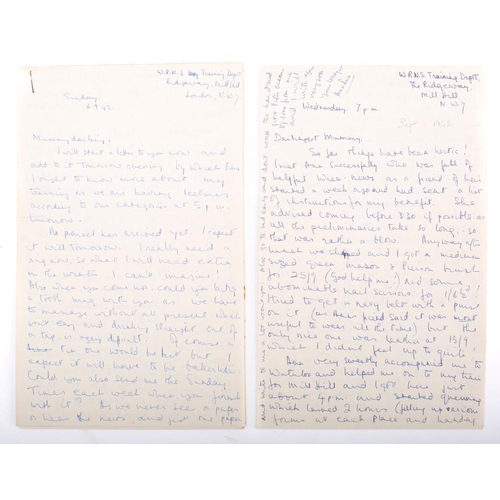 W.R.N.S Training Dept
Ridgeway, Mill Hill
London, N.W.7
Sunday.
6.9.42
Mummy darling,
I will start a letter to you now and
add to it Tomorrow evening by which time
I ought to know more about my
Training as we are having lectures
according to our categories at 5 p.m.
Tomorrow.
No parcel has arrived yet. I expect
it will Tomorrow. I really need a
so what I will need extra
in the winter I can't imagine!
Also when you come up could you bring
a tooth mug with you as we have
to manage without at present which
isn't easy and drinking straight out of
a tap is very difficult. Of course a
tin one would be best but I
expect it will have to be bakelite.
Could you also send me the Sunday
Times each week when you finish
with it? As we never see a paper
or hear the news and just one paper
W.R.N.S Training Depot,
The Ridgeway,
Mill Hill
N.W.7
Wednesday. 7 p.m.
Darlingest Mummy,
So far things have been hectic!
I met Ann successfully who was full of
helpful Wren-news as a friend of hers
started a week ago and had sent a list
of instructions for my benefit. She
advised coming before 3.30 if possible as
all the preliminaries take so long - so
that was rather a blow. Anyway after
lunch we shopped and I got a medium
sized green Mason & Pearson brush
for 25/9 (God help me!) and some
abominable nail scissors for 1/6½!
I tried to get a navy belt with a purse
on it (as Ann's friend said it was most
useful to wear all the time) but the
only nice one was leather at 15/9
which I didn't feel up to quite!
Ann very sweetly accompanied me to
Waterloo and helped me on to my train
for Mill Hill and I got here just
about 4 p.m. and started queueing
which lasted 2 hours (filling up various
forms at each place and handing